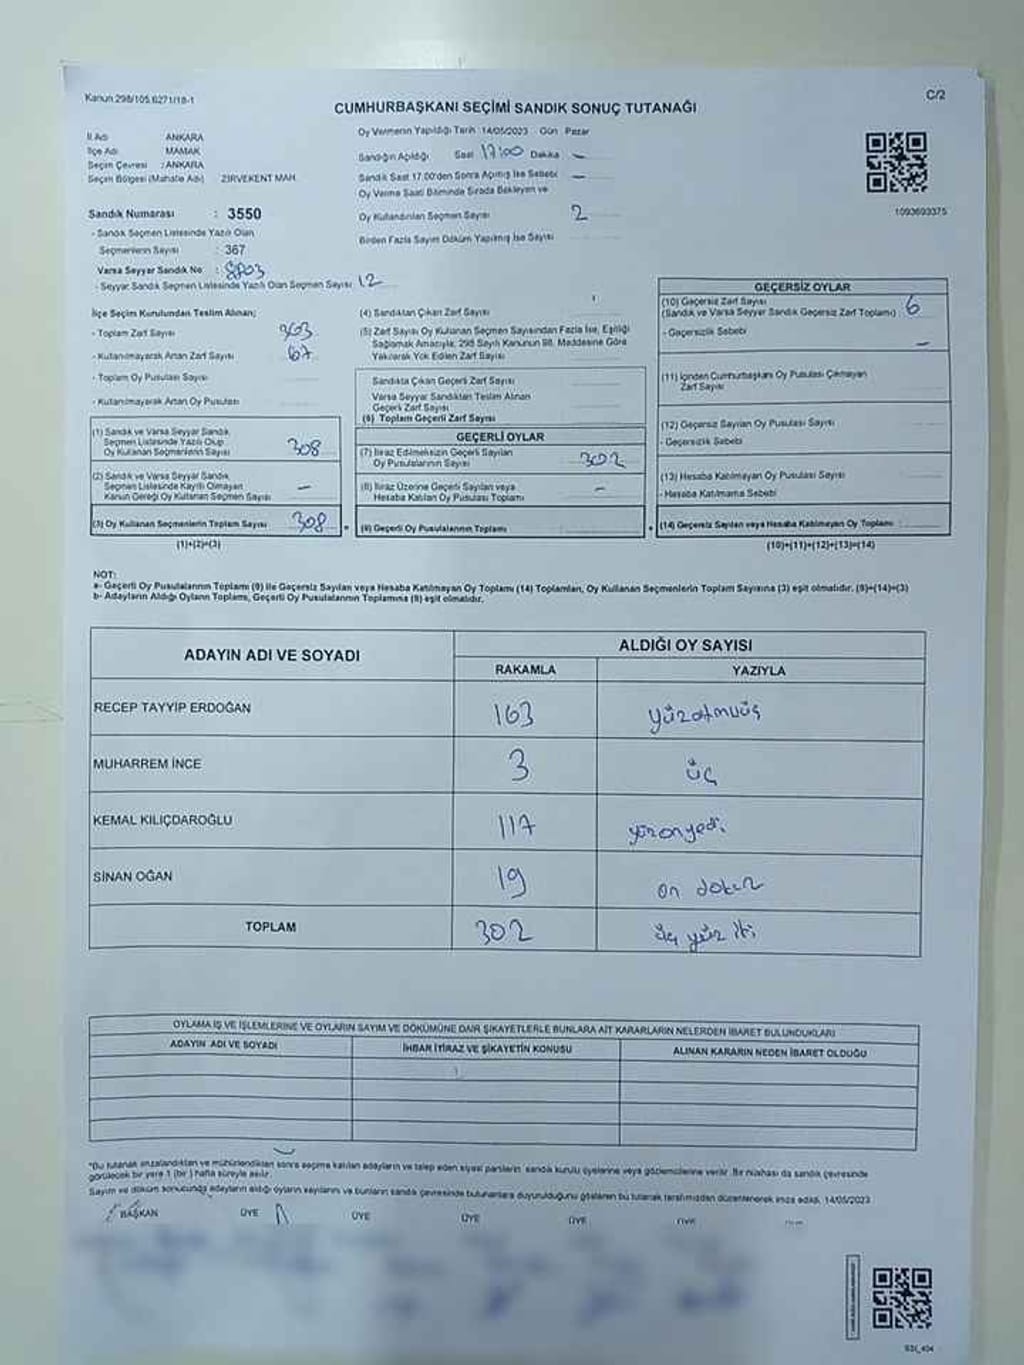 Kanun 298/105,6271/18-1
C/2
CUMHURBAŞKANI SEÇİMİ SANDIK SONUÇ TUTANAĞI
İl Adı ANKARA
İlçe Adı MAMAK
Seçim Çevresi : ANKARA
Seçim Bölgesi (Mahalle Adı) ZİRVEKENT MAH.
Sandık Numarası : 3550
- Sandık Seçmen Listesinde Yazılı Olan
Seçmenlerin Sayısı : 367
Varsa Seyyar Sandık No :
- Seyyar Sandık Seçmen Listesinde Yazılı Olan Seçmen Sayısı 12
Oy Vermenin Yapıldığı Tarih 14/05/2023 Gün Pazar
Sandığın Açıldığı Saat 17:00 Dakika –
Sandık Saat 17.00'den Sonra Açılmış İse Sebebi –
Oy Verme Saati Bitiminde Sırada Bekleyen ve
Oy Kullandırılan Seçmen Sayısı 2
Birden Fazla Sayım Döküm Yapılmış İse Sayısı
1093693375
İlçe Seçim Kurulundan Teslim Alınan;
- Toplam Zarf Sayısı 363
- Kullanılmayarak Artan Zarf Sayısı 67
- Toplam Oy Pusulası Sayısı
- Kullanılmayarak Artan Oy Pusulası
(1) Sandık ve Varsa Seyyar Sandık
Seçmen Listesinde Yazılı Olup
Oy Kullanan Seçmenlerin Sayısı 308
(2) Sandık ve Varsa Seyyar Sandık
Seçmen Listesinde Kayıtlı Olmayan
Kanun Gereği Oy Kullanan Seçmen Sayısı –
(3) Oy Kullanan Seçmenlerin Toplam Sayısı 308
(1)+(2)=(3)
(4) Sandıktan Çıkan Zarf Sayısı
(5) Zarf Sayısı Oy Kullanan Seçmen Sayısından Fazla İse, Eşitliği
Sağlamak Amacıyla, 298 Sayılı Kanunun 98. Maddesine Göre
Yakılarak Yok Edilen Zarf Sayısı
Sandıkta Çıkan Geçerli Zarf Sayısı
Varsa Seyyar Sandıktan Teslim Alınan
Geçerli Zarf Sayısı
(6) Toplam Geçerli Zarf Sayısı
GEÇERLİ OYLAR
(7) İtiraz Edilmeksizin Geçerli Sayılan
Oy Pusulalarının Sayısı 302
(8) İtiraz Üzerine Geçerli Sayılan veya
Hesaba Katılan Oy Pusulası Toplamı –
(9) Geçerli Oy Pusulalarının Toplamı
GEÇERSİZ OYLAR
(10) Geçersiz Zarf Sayısı
(Sandık ve Varsa Seyyar Sandık Geçersiz Zarf Toplamı) 6
- Geçersizlik Sebebi –
(11) İçinden Cumhurbaşkanı Oy Pusulası Çıkmayan
Zarf Sayısı
(12) Geçersiz Sayılan Oy Pusulası Sayısı
- Geçersizlik Sebebi
(13) Hesaba Katılmayan Oy Pusulası Sayısı
- Hesaba Katılmama Sebebi
(14) Geçersiz Sayılan veya Hesaba Katılmayan Oy Toplamı :
(10)+(11)+(12)+(13)=(14)
NOT:
a- Geçerli Oy Pusulalarının Toplamı (9) ile Geçersiz Sayılan veya Hesaba Katılmayan Oy Toplamı (14) Toplamları, Oy Kullanan Seçmenlerin Toplam Sayısına (3) eşit olmalıdır. (9)+(14)=(3)
b- Adayların Aldığı Oyların Toplamı, Geçerli Oy Pusulalarının Toplamına (9) eşit olmalıdır.
ADAYIN ADI VE SOYADI
ALDIĞI OY SAYISI
RAKAMLA YAZIYLA
RECEP TAYYİP ERDOĞAN 163 yüzatmışüç
MUHARREM İNCE 3 üç
KEMAL KILIÇDAROĞLU 117 yüzonyedi
SİNAN OĞAN 19 on dokuz
TOPLAM 302 üç yüz iki
OYLAMA İŞ VE İŞLEMLERİNE VE OYLARIN SAYIM VE DÖKÜMÜNE DAİR ŞİKAYETLERLE BUNLARA AİT KARARLARIN NELERDEN İBARET BULUNDUKLARI
ADAYIN ADI VE SOYADI İHBAR İTİRAZ VE ŞİKAYETİN KONUSU ALINAN KARARIN NEDEN İBARET OLDUĞU
*Bu tutanak imzalandıktan ve mühürlendikten sonra seçime katılan adayların ve talep eden siyasi partilerin sandık kurulu üyelerine veya gözlemcilerine verilir. Bir nüshası da sandık çevresinde
görülecek bir yere 1 (bir) hafta süreyle asılır.
Sayım ve döküm sonucunda adayların aldığı oyların sayılarını ve bunların sandık çevresinde bulunanlara duyurulduğunu gösteren bu tutanak tarafımızdan düzenlenerek imza edildi. 14/05/2023
BAŞKAN ÜYE ÜYE ÜYE ÜYE ÜYE